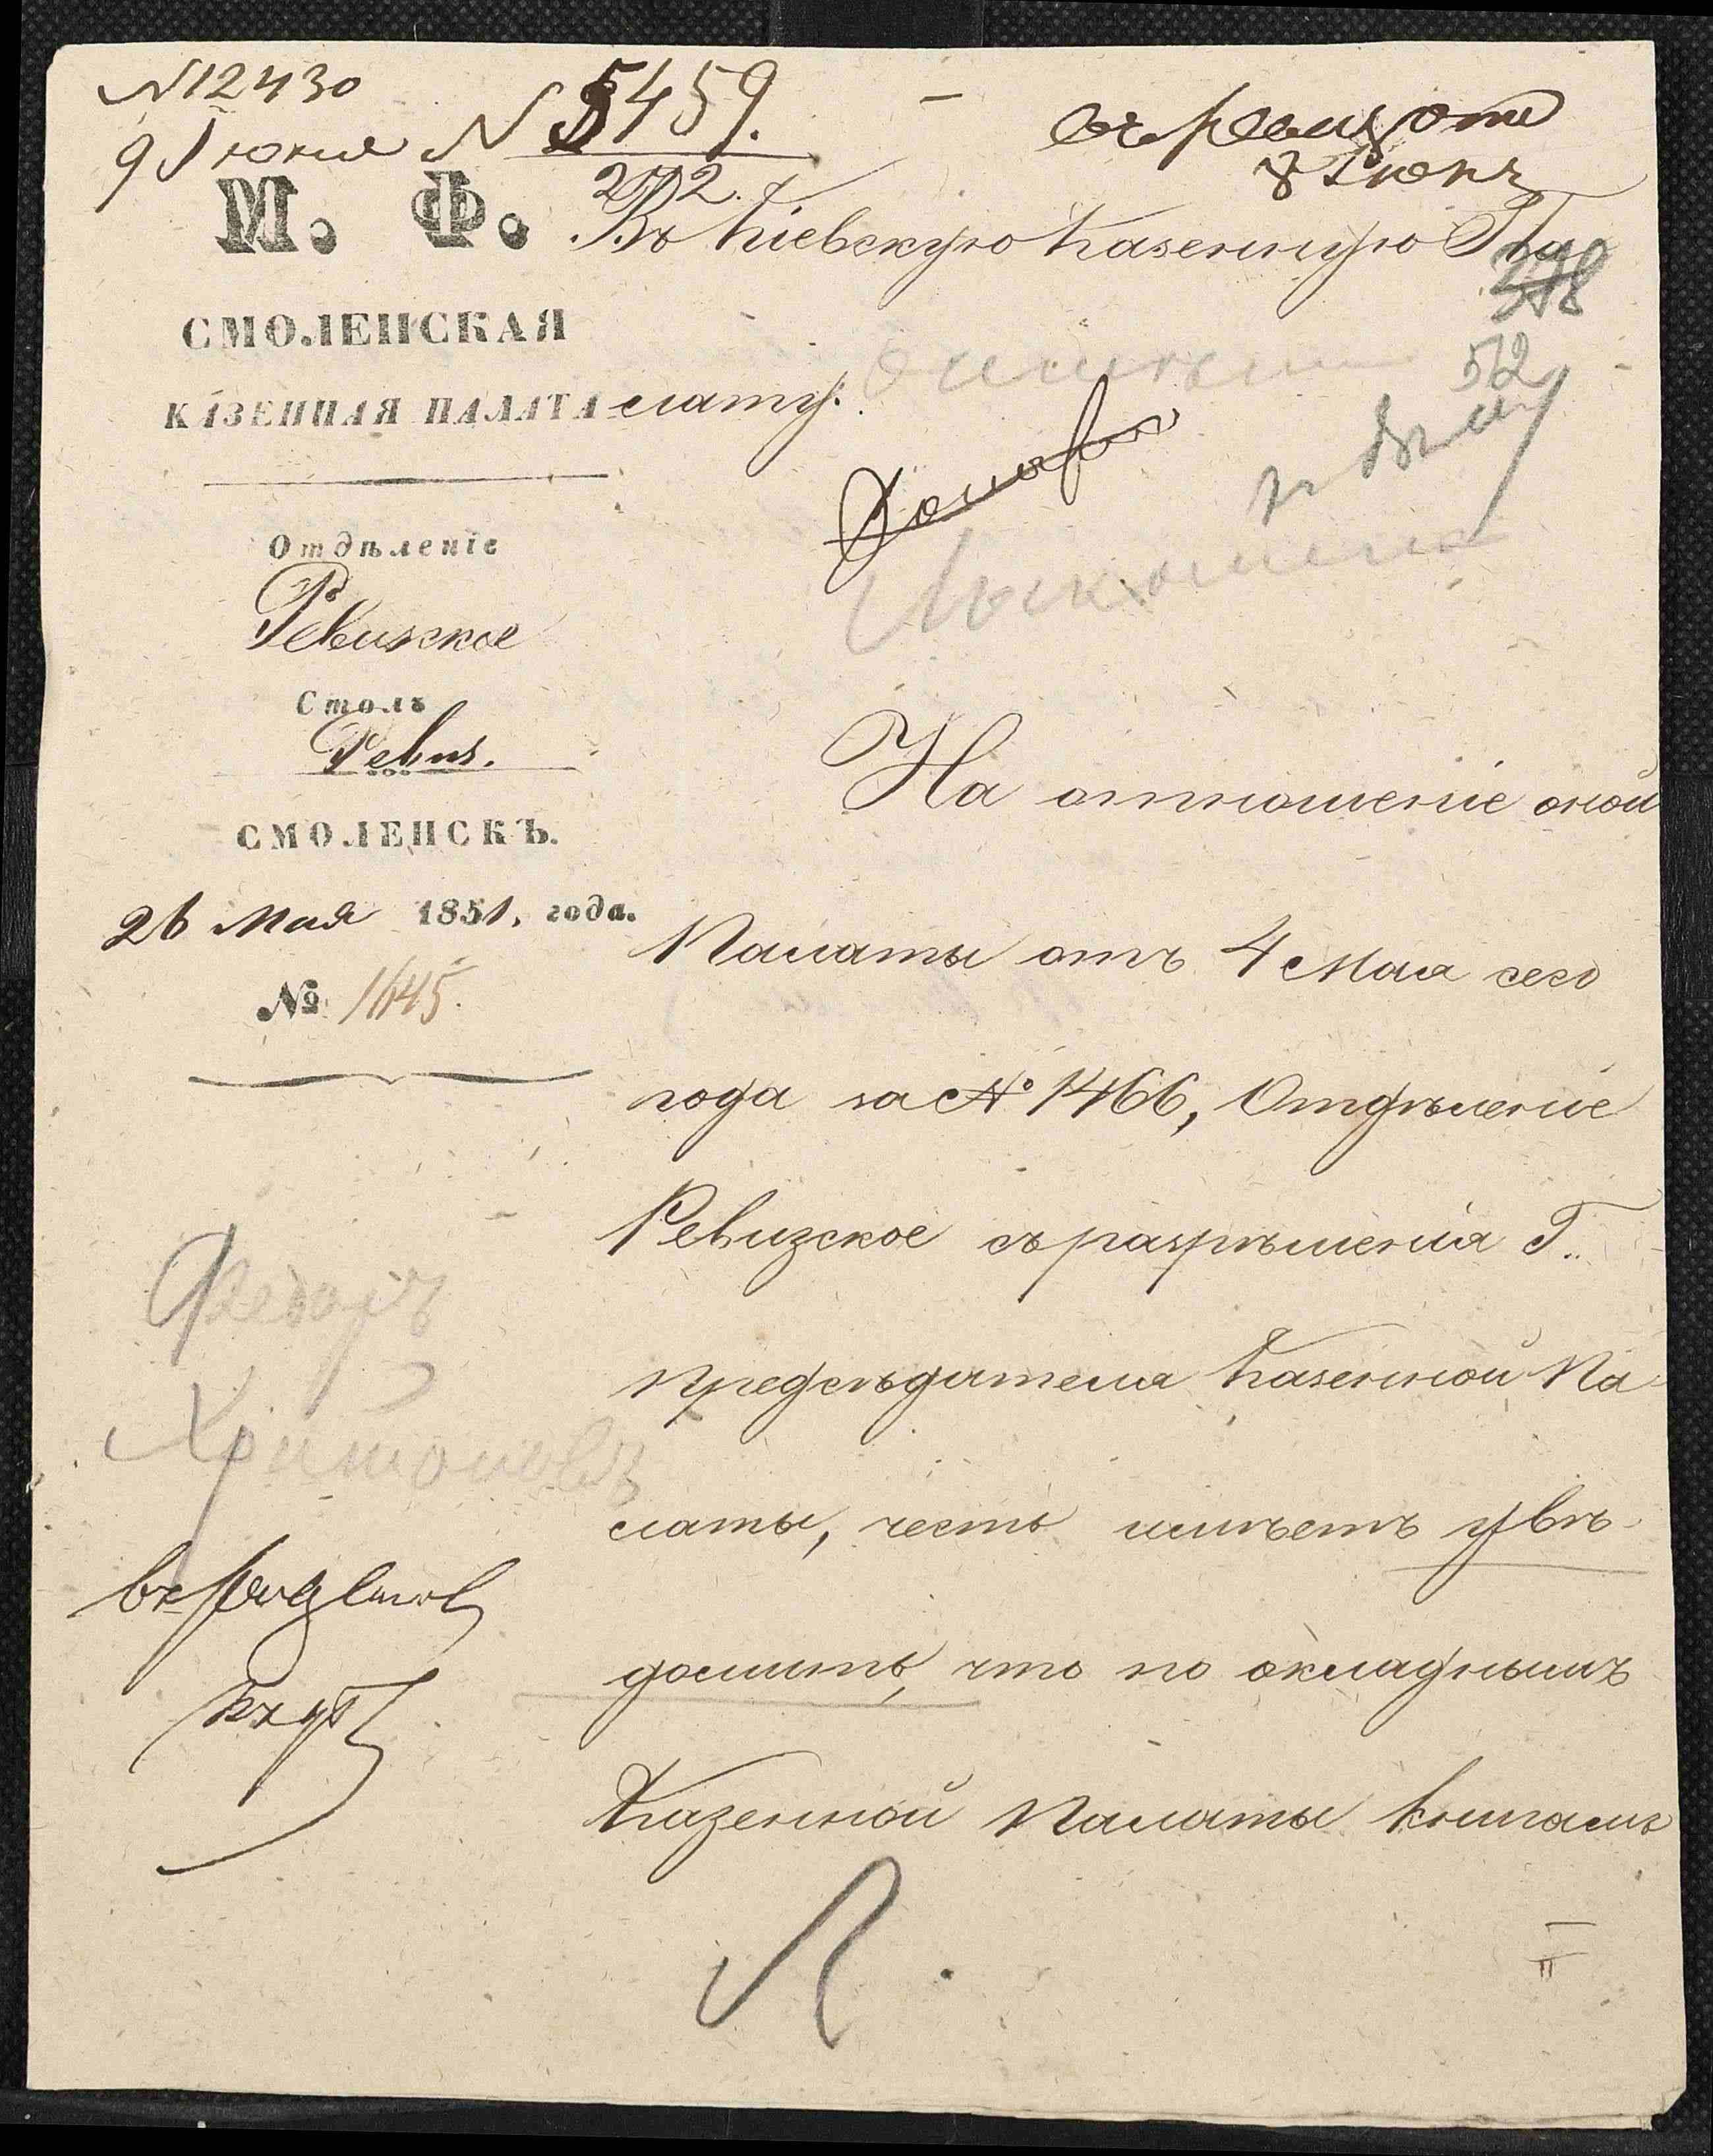 № 12430
9 Июня № 5459.
272.
8 Июня
М. Ф.
Въ Кіевскую Казенную Па-
СМОЛЕНСКАЯ
52
КАЗЕННАЯ ПАЛАТА
лату.
Отдѣленіе
Ревизское
Столъ
Ревиз.
СМОЛЕНСКЪ.
26 Мая 1851. года.
№ 1645.
На отношеніе оной
Палаты отъ 4 Мая сего
года за № 1466, Отдѣленіе
Ревизское съ разрѣшенія Г.
Предсѣдателя Казенной Па-
латы, честь имѣетъ увѣ-
домить, что по окладнымъ
Казенной Палаты книгамъ
Федоръ